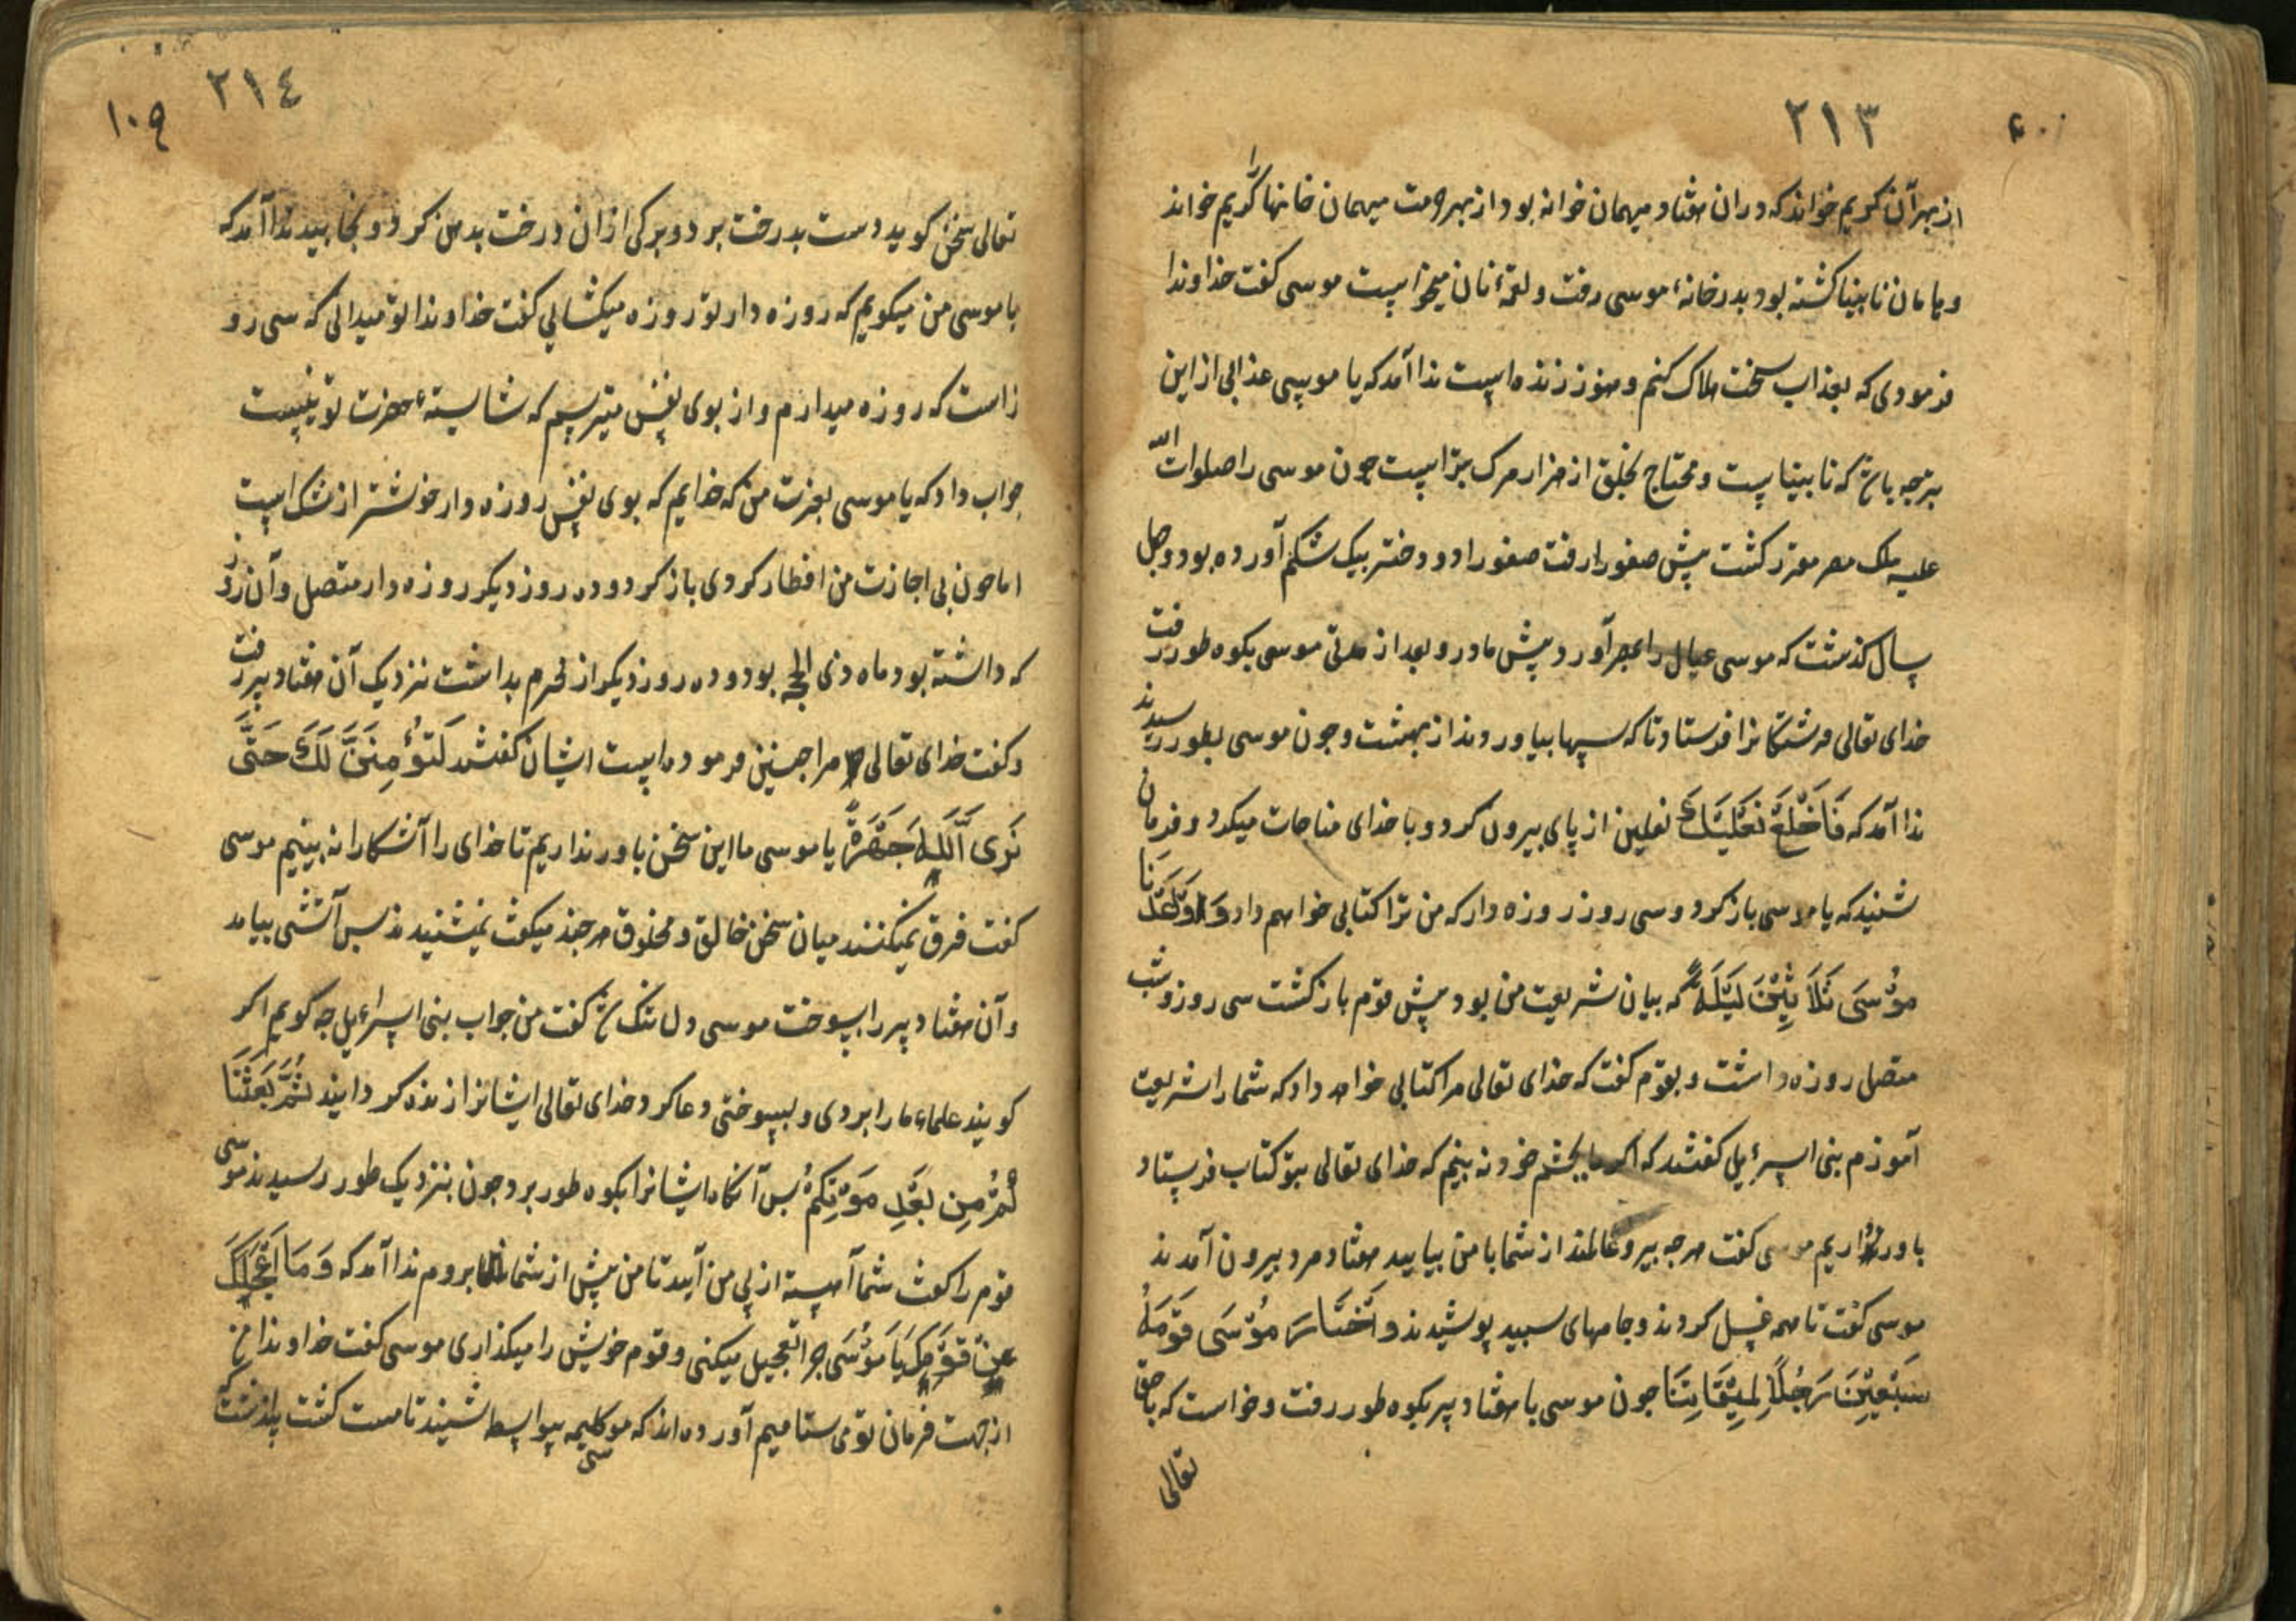 ٢١٣
از بهر آن کریم خواند که دران هفتاد میهمان خوانه بود از بهر حرمت میهمان خانها را کریم خواند
و یامان نابینا کشته بود بدر خانهٔ موسی رفت و لقمهٔ نان میخواست موسی کفت خداوندا
فرمودی که بعذاب سخت هلاک کنم و هنوز زنده است ندا آمد که یا موسی عذابی از این
بتر چه باشد که نابیناست و محتاج بخلق از هزار مرک بتر است چون موسی را صلوات الله
علیه ملک مصر مقرر کشت پیش صفورا رفت صفورا دو دختر بیک شکم آورده بود و چهل
سال کذشت که موسی عیال را بمصر آورد پیش مادر و بعد از مدتی موسی بکوه طور رفت
خدای تعالی فرشتکانرا فرستاد تا کرسیها بیاوردند از بهشت و چون موسی بطور رسیدند
ندا آمد که فَاخْلَعْ نَعْلَيْكَ نعلین از پای بیرون کرد و با خدای مناجات میکرد و فرمان
شنید که یا موسی باز کرد و سی روز روزه دار که من ترا کتابی خواهم داد وَوٰعَدْنَا
مُوْسَى ثَلَاثِيْنَ لَيْلَةً که بیان شریعت من بود پیش قوم باز کشت سی روز و شب
متصل روزه داشت و بقوم کفت که خدای تعالی مرا کتابی خواهد داد که شما را شریعت
آموزم بنی اسرٵیل کفتند که اکر ما بچشم خود نه بینم که خدای تعالی بتو کتاب فرستاد
باور نداریم موسی کفت هرچه پیر و عالمند از شما با من بیایید هفتاد مرد بیرون آمدند
موسی کفت تا همه غسل کردند و جامهای سبید پوشیدند وَاخْتَارَ مُوْسَى قَوْمَهُ
سَبْعِيْنَ رَجُلًا لِمِيْقَاتِنَا چون موسی با هفتاد پیر بکوه طور رفت و خواست که با حق
تعالی
٢١٤
١٠٩
تعالی سخن کوید دست بدرخت برد و برکی ازان درخت بدهن کرد و بخایید ندا آمد که
یا موسی من میکویم که روزه دار تو روزه میکشائی کفت خداوندا تو میدانی که سی رو
زاست که روزه میدارم و از بوی نفس میترسم که شایستهٔ حضرت تو نیست
جواب داد که یا موسی بعزت من که خدایم که بوی نفس روزه دار خوشتر از مشک است
اما چون بی اجازت من افطار کردی باز کرد و ده روز دیکر روزه دار متصل و آن روز
که داشته بود ماه ذی الحجه بود و ده روز دیکر از محرم بداشت نزدیک آن هفتاد پیر رفت
و کفت خدای تعالی مرا چنین فرموده است ایشان کفتند لَنْ نُؤْمِنَ لَكَ حَتَّى
نَرَى اللّٰهَ جَهْرَةً یا موسی ما این سخن باور نداریم تا خدای را آشکارا نه بینیم موسی
کفت فرق نمیکنند میان سخن خالق و مخلوق هرچند میکفت نمیشنیدند بس آتشی بیامد
و آن هفتاد پیر را بسوخت موسی دل تنک شد کفت من جواب بنی اسرٵیل چه کویم اکر
کویند علماء ما را بردی و بسوختی دعا کرد خدای تعالی ایشانرا زنده کردانید ثُمَّ بَعَثْنَا
كُمْ مِنْ بَعْدِ مَوْتِكُمْ بس آنکاه ایشانرا بکوه طور برد چون بنزدیک طور رسیدند موسی
قوم را کفت شما آهسته از پی من آیید تا من پیش از شما بروم ندا آمد که وَمَا اَعْجَلَكَ
عَنْ قَوْمِكَ يَا مُوْسَى چرا تعجیل میکنی و قوم خویش را میکذاری موسی کفت خداوندا من
از جهت فرمان تو می ستابم آورده اند که موسی کلیمه بیواسطه شنید تا مست کشت